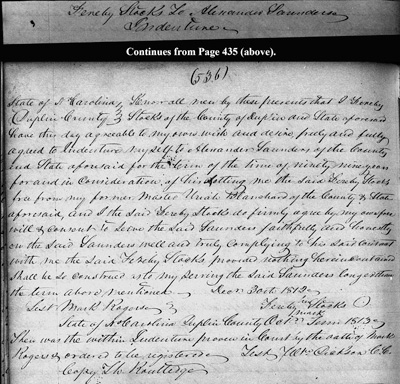 Fereby Stocks To Alexander Saunders
Indenture
Continues from Page 435 (above).
(536)
State of N Carolina, Know all men by these presents that I Fereby
Duplin County } Stocks of the County of Duplin and State aforesaid
have this day agreeable to my own wish and desire freely and fully
agreed to Indenture myself to Alexander Saunders of the County
and State aforesaid for the term of the time of ninety nine years
for and in Consideration of his letting me the said Fereby Stocks
free from my former Master Uriah Blanchard of the County & State
aforesaid, and I the said Fereby Stocks do firmly agree by my own free
will & consent to serve the said Saunders faithfully and honestly
on the said Saunders well and truly Complying to his said Contract
with me the said Fereby Stocks provided nothing herein contained
shall be so construed into my serving the said Saunders longer than
the term above mentioned Decr 30th 1812
Test Mark Rogers } Fereby Stocks
mark
State of N Carolina Duplin County Octr Term 1813
Then was the within Indenture proven in Court by the oath of Mark
Rogers & ordered to be registered Test Wm Dickson C.C.
Copy Th Routledge